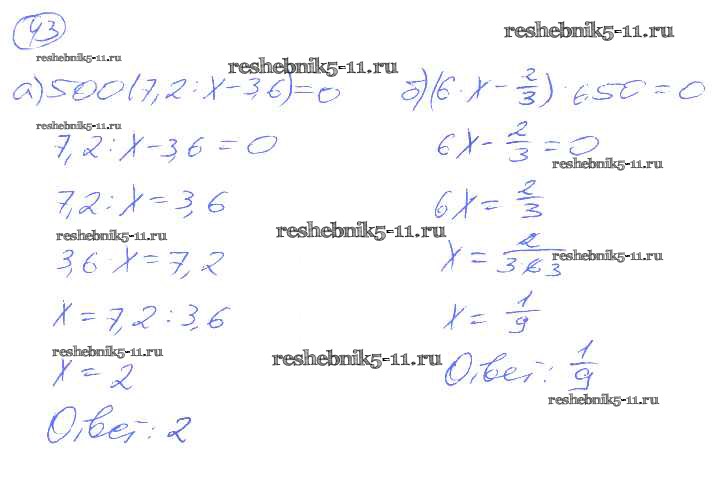 43
reshebnik5-11.ru
reshebnik5-11.ru
reshebnik5-11.ru
а) 500(7,2 : x - 3,6) = 0
б) (6 · x - 2/3) · 650 = 0
reshebnik5-11.ru
7,2 : x - 3,6 = 0
6x - 2/3 = 0
reshebnik5-11.ru
7,2 : x = 3,6
6x = 2/3
reshebnik5-11.ru
reshebnik5-11.ru
3,6 · x = 7,2
x = 2/(3 · 6 3
reshebnik5-11.ru
x = 7,2 : 3,6
x = 1/9
reshebnik5-11.ru
reshebnik5-11.ru
x = 2
Ответ: 1/9
reshebnik5-11.ru
Ответ: 2